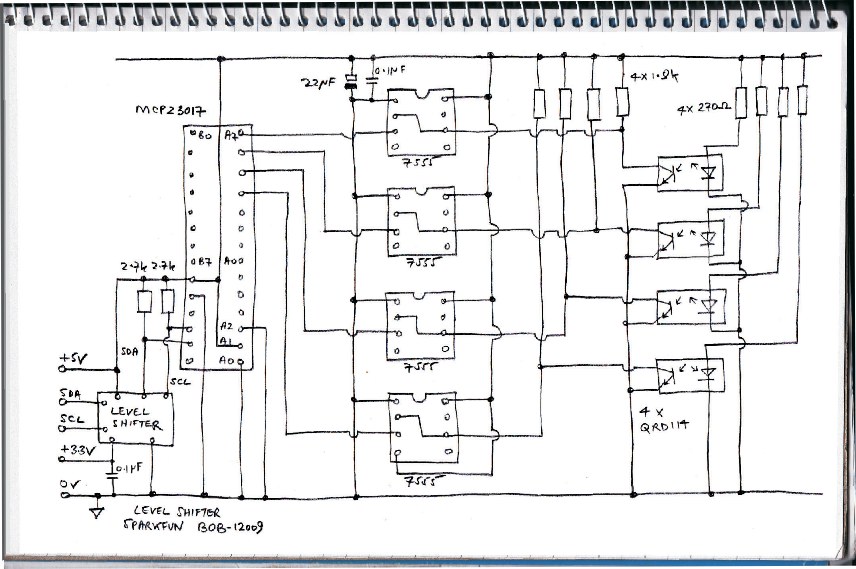 22µF
0.1µF
4 X 1.2k
4X 270Ω
MCP23017
B0
A7
7555
7555
2.7k 2.7k
B7
A0
7555
A2
A1
A0
SDA
SCL
+5V
SDA
SCL
+3.3V
0V
LEVEL
SHIFTER
0.1µF
7555
4 X
QRD114
LEVEL SHIFTER
SPARKFUN BOB-12009